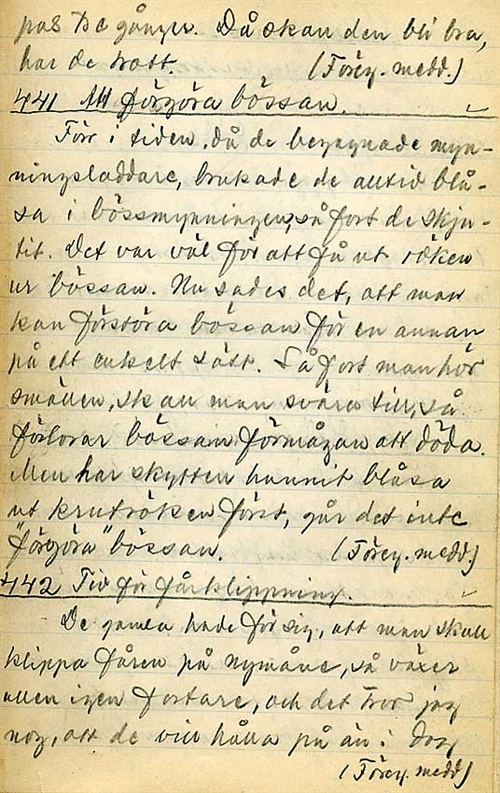 pas tre gånger. Då skan den bli bra,
har de trott. (Föreg. medd.)
441 Att förgöra bössan.
Förr i tiden, då de begagnade myn-
ningsladdare, brukade de alltid blå-
sa i bössmynningen, så fort de skju-
tit. Det var väl för att få ut röken
ur bössan. Nu sades det, att man
kan förstöra bössan för en annan
på ett enkelt sätt. Så fort man hör
smällen, skall man svära till, så
förlorar bössan förmågan att döda.
Men har skytten hunnit blåsa
ut krutröken först, går det inte
"förgöra" bössan. (Föreg. medd.)
442 Tid för fårklippning.
De gamla hade för sig, att man skall
klippa fåren på nymåne, så växer
ullen igen fortare, och det tror jag
nog, att de vill hålla på än i dag
(Föreg. medd)